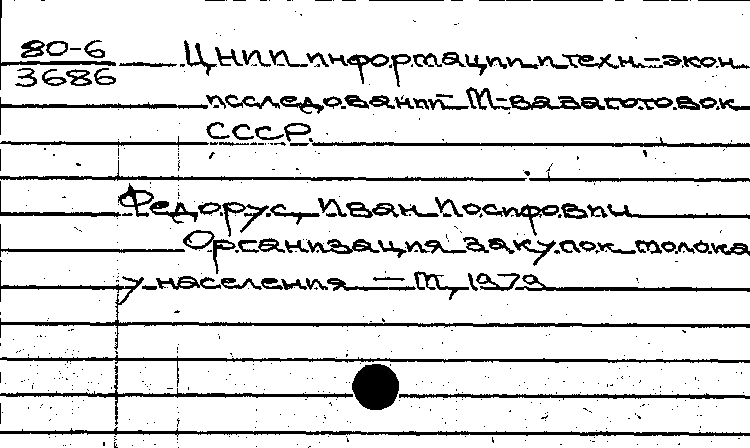 80-6
3686
ЦНИИ информации и техн.-экон.
исследований М-ва заготовок
СССР.
Федорус, Иван Иосифович
Организация закупок молока
у населения. — М., 1979